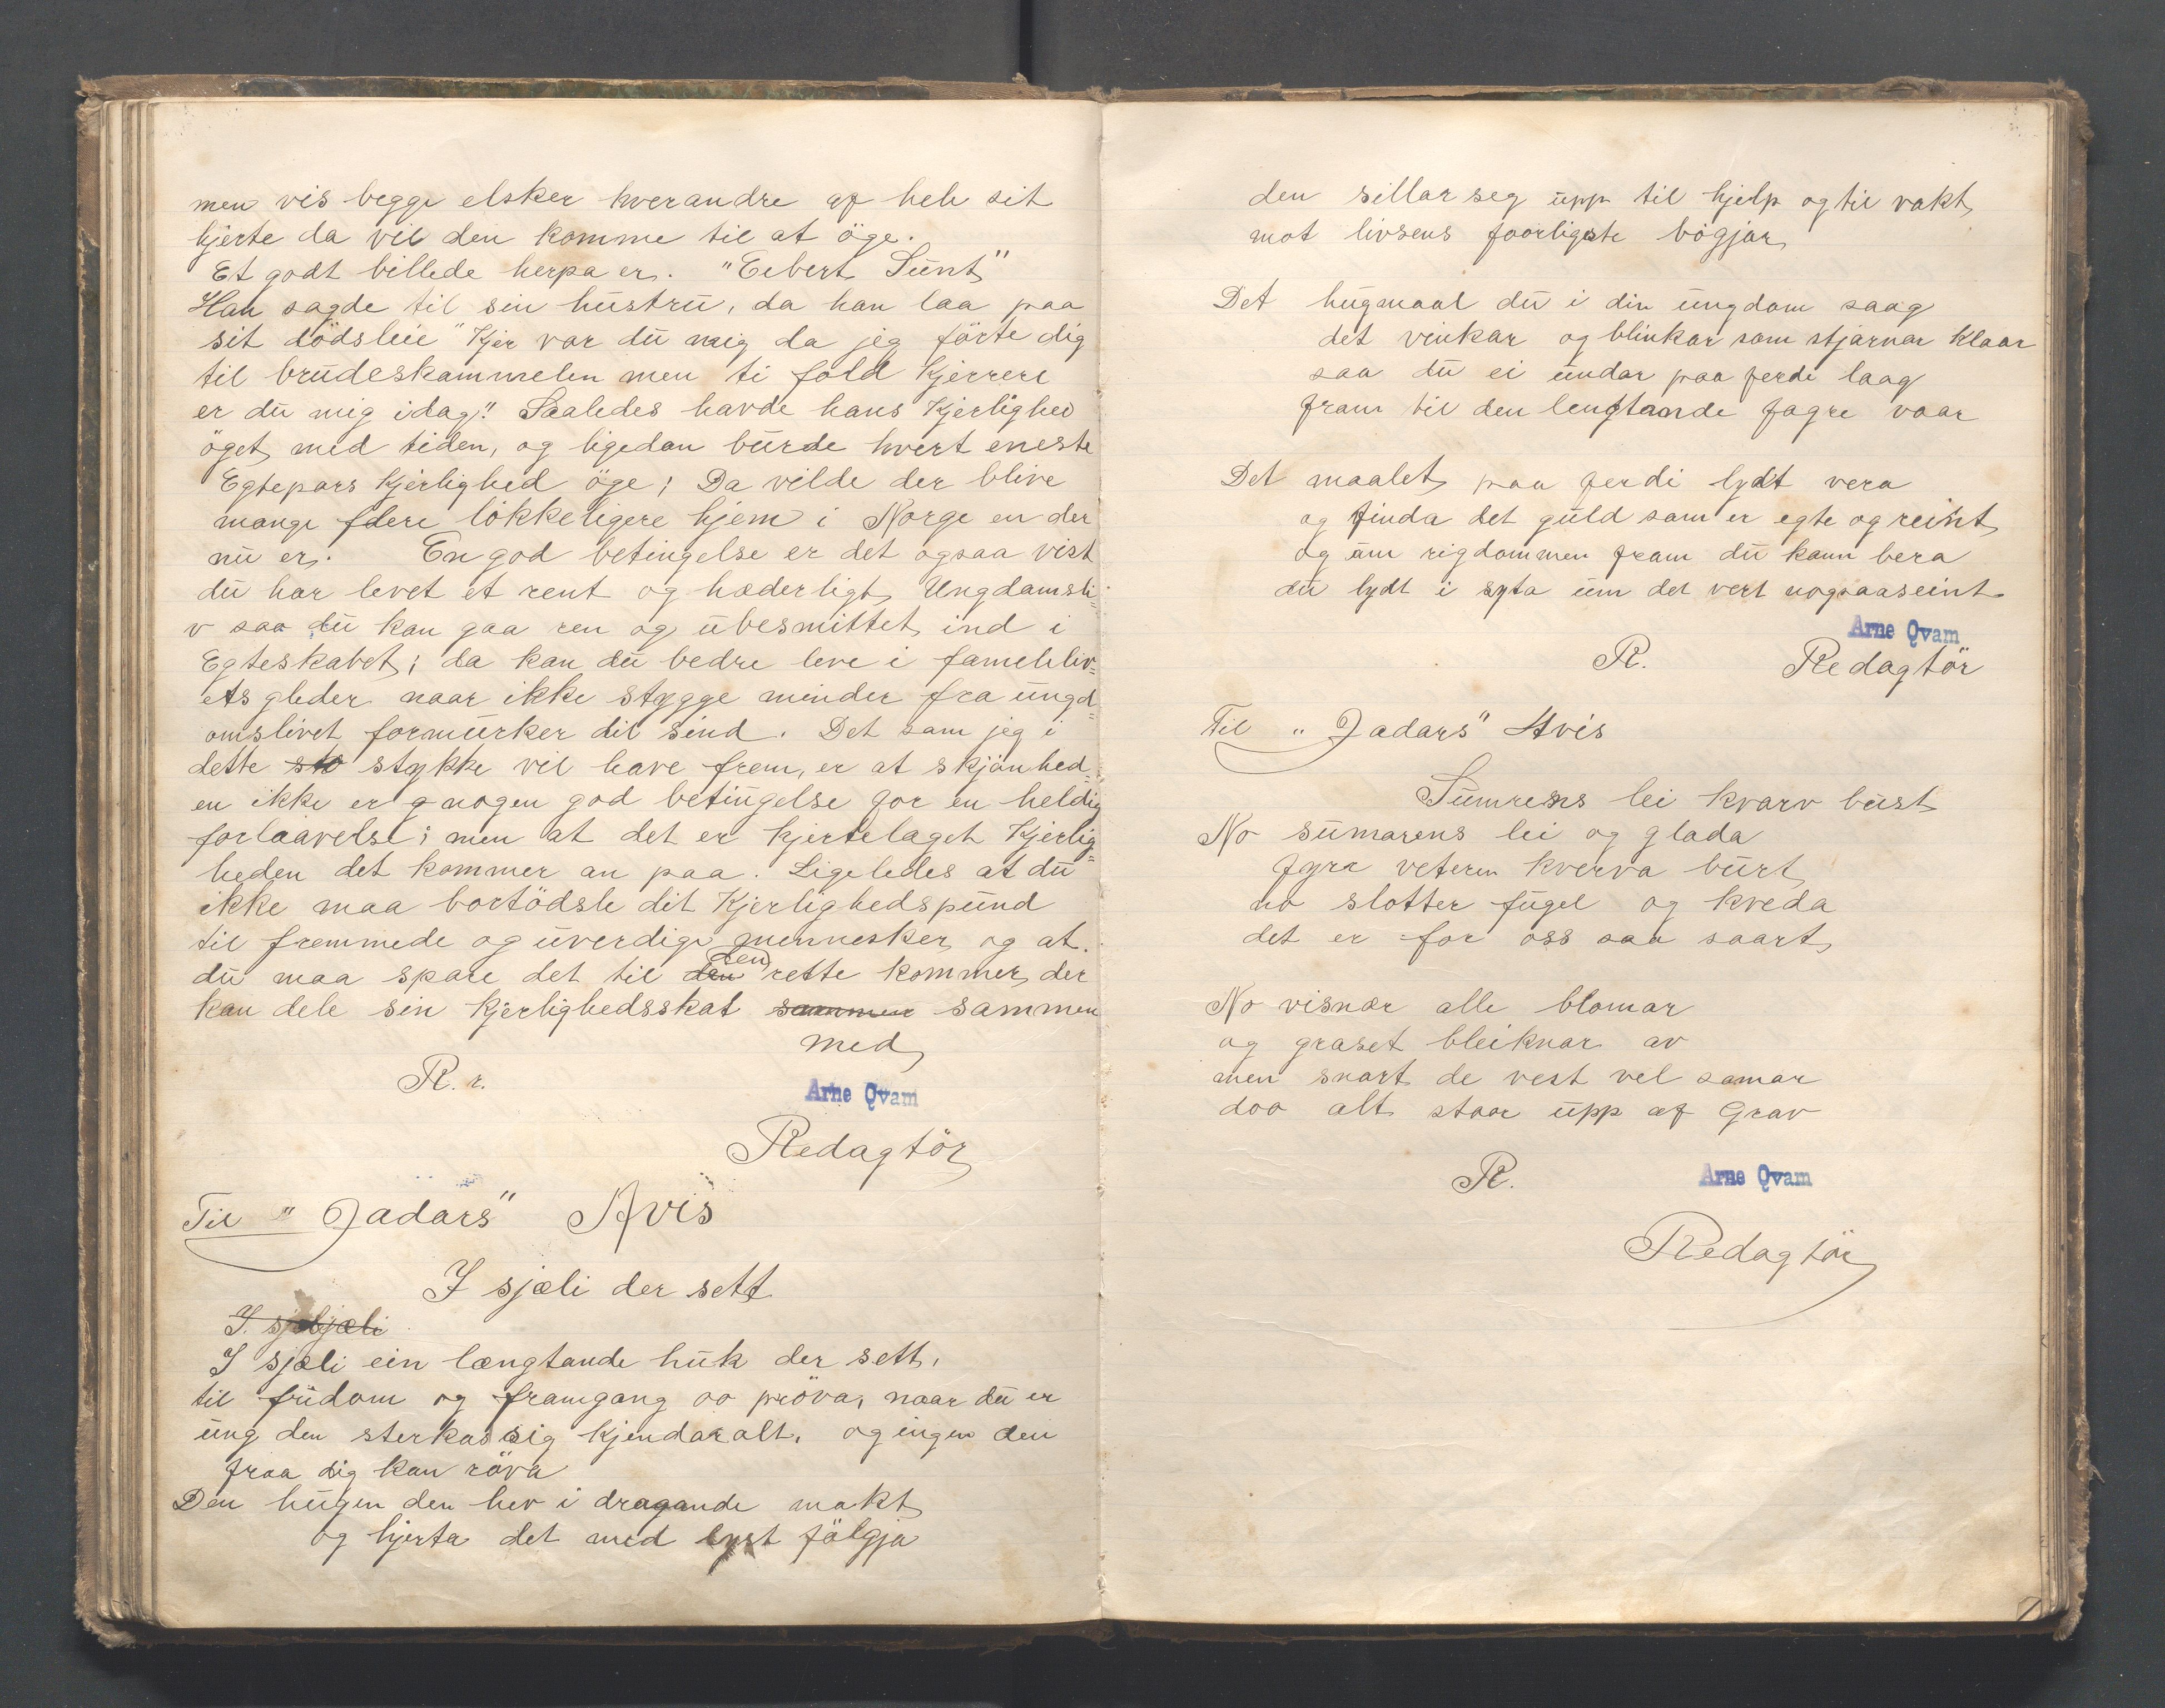 men vis begge elsker hverandre af hele sit
hjerte da vil den komme til at öge.
Et godt billede herpa er. "Eebert Sunt"
Han sagde til sin hustru, da han laa paa
sit dödsleie "Kjer var du mig da jeg förte dig
til brudeskammelen men ti fold Kjerrere
er du mig idag". Saaledes havde hans Kjerlighed
öget med tiden, og ligedan burde hvert eneste
Egtepars Kjerlighed öge; Da vilde der blive
mange flere lökkeligere hjem i Norge en der
nu er. En god betingelse er det ogsaa vist
du har levet et rent og hæderligt Ungdamsli-
v saa du kan gaa ren og ubesmittet ind i
Egteskabet; da kan du bedre leve i famelieliv-
ets gleder naar ikke stygge minder fra ungd-
omslivet formurker dit sind. Det sam jeg i
dette sto stykke vil have frem, er at skjönhed-
en ikke er g nogen god betingelse for en heldig
forlaavelse; men at det er hjertelaget Kjerlig-
heden det kommer an paa. Ligeledes at du
ikke maa bortödsle dit Kjerlighedspund
til fremmede og uverdige mennesker og at
du maa spare det til den den rette kommer, der
kan dele sin Kjerlighedsskat sammen sammen
med
R. r.
Arne Qvam
Redagtör
Til "Jadars" Avis
I sjæli der sett
I. sjæli
I sjæli ein længtande huk der sett,
til fridom og framgang oo pröva, naar du er
ung den sterkas sig kjendar alt, og ingen den
fraa dig kan röva
Den hugen den hev i dragande makt
og hjerta det med lyst fölgja
den sillar seg upp til hjelp og til vakt
mot livsens foorligste bögjar
Det hugmaal du i din ungdom saag
det vinkar og blinkar som stjarnar klaar
saa du ei undar paa ferdi laag
fram til den lengtande fagre vaar
Det maalet paa ferdi lydt vera
og finda det guld som er egte og reint
og um rigdommen fram du kann bera
du lydt i syta um det vert nogsaaseint
Arne Qvam
R. Redagtör
Til "Jadars" Avis
Sumrens lei kvarv burt
No sumarens lei og glada
fyre veteren kverva burt
no slotter fugel og kveda
det er for oss saa saart
No visnar alle blomar
og graset bleiknar av
men snart de vest vel somar
doo alt staar upp af Grav
R. Arne Qvam
Redagtör